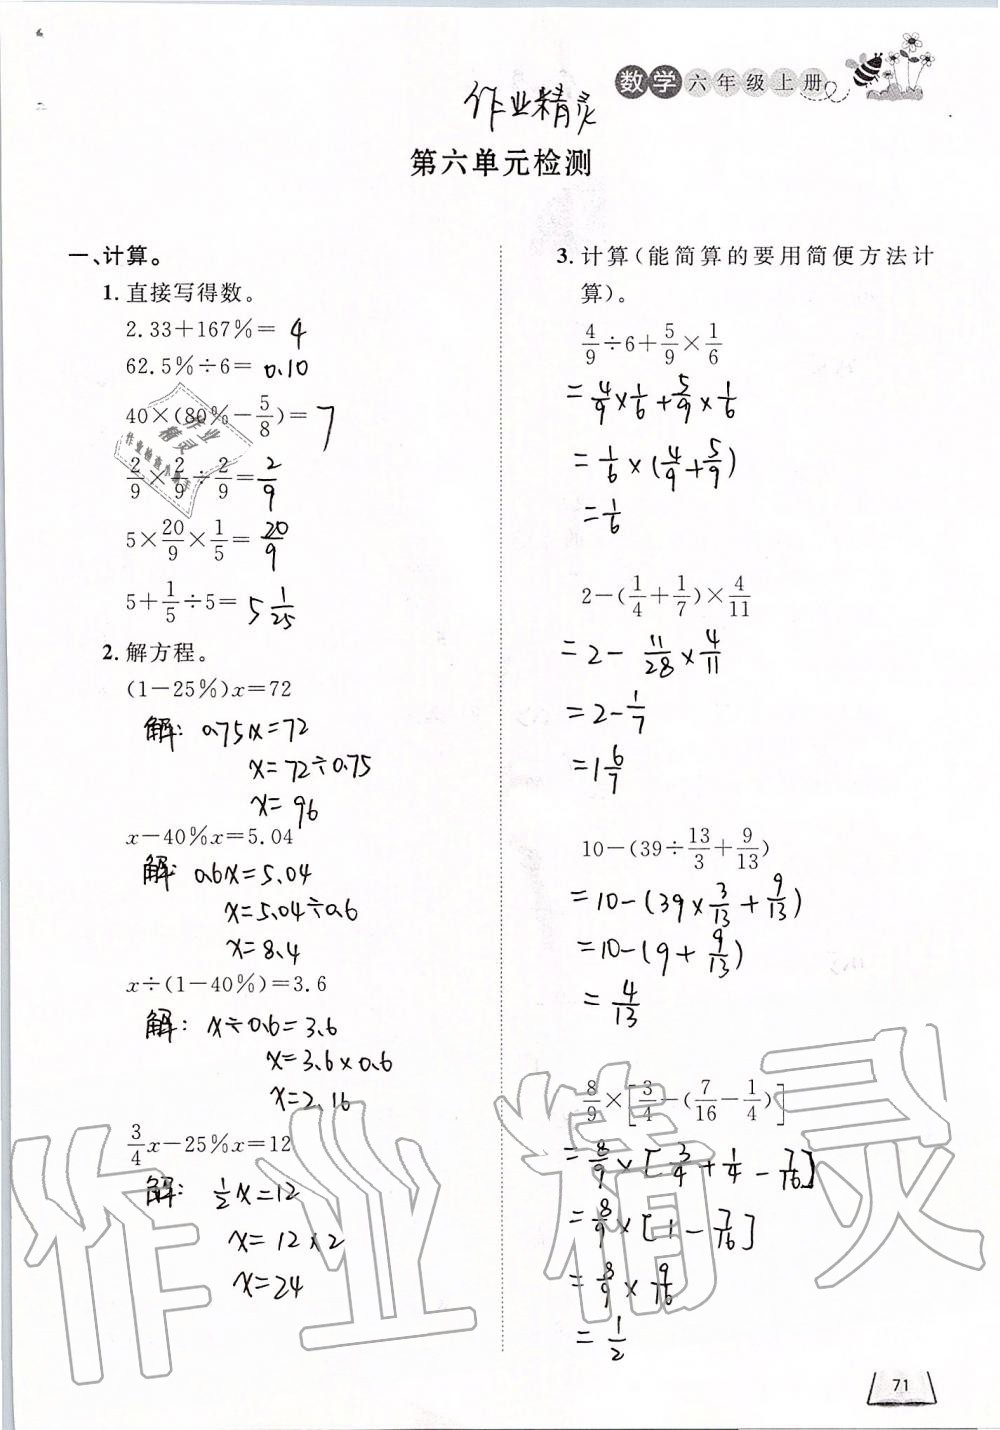 数学 六年级上册
作业精灵
第六单元检测
一、计算。
1. 直接写得数。
2.33+167%= 4
62.5%÷6= 0.10
40×(80%-5/8)= 7
2/9×2/9÷2/9= 2/9
5×20/9×1/5= 20/9
5+1/5÷5= 5 1/25
2. 解方程。
(1-25%)x=72
解: 0.75x=72
x=72÷0.75
x=96
x-40%x=5.04
解: 0.6x=5.04
x=5.04÷0.6
x=8.4
x÷(1-40%)=3.6
解: x÷0.6=3.6
x=3.6×0.6
x=2.16
3/4x-25%x=12
解: 1/2x=12
x=12×2
x=24
3. 计算(能简算的要用简便方法计
算)。
4/9÷6+5/9×1/6
=4/9×1/6+5/9×1/6
=1/6×(4/9+5/9)
=1/6
2-(1/4+1/7)×4/11
=2-11/28×4/11
=2-1/7
=1 6/7
10-(39÷13/3+9/13)
=10-(39×3/13+9/13)
=10-(9+9/13)
=4/13
8/9×[3/4-(7/16-1/4)]
=8/9×[3/4+1/4-7/16]
=8/9×[1-7/16]
=8/9×9/16
=1/2
71
作业精灵
作业
精灵